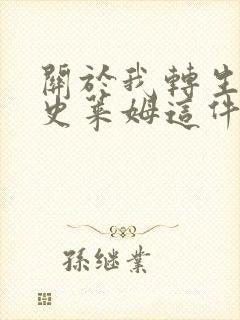 關於我轉生
史萊姆這件
孫继業